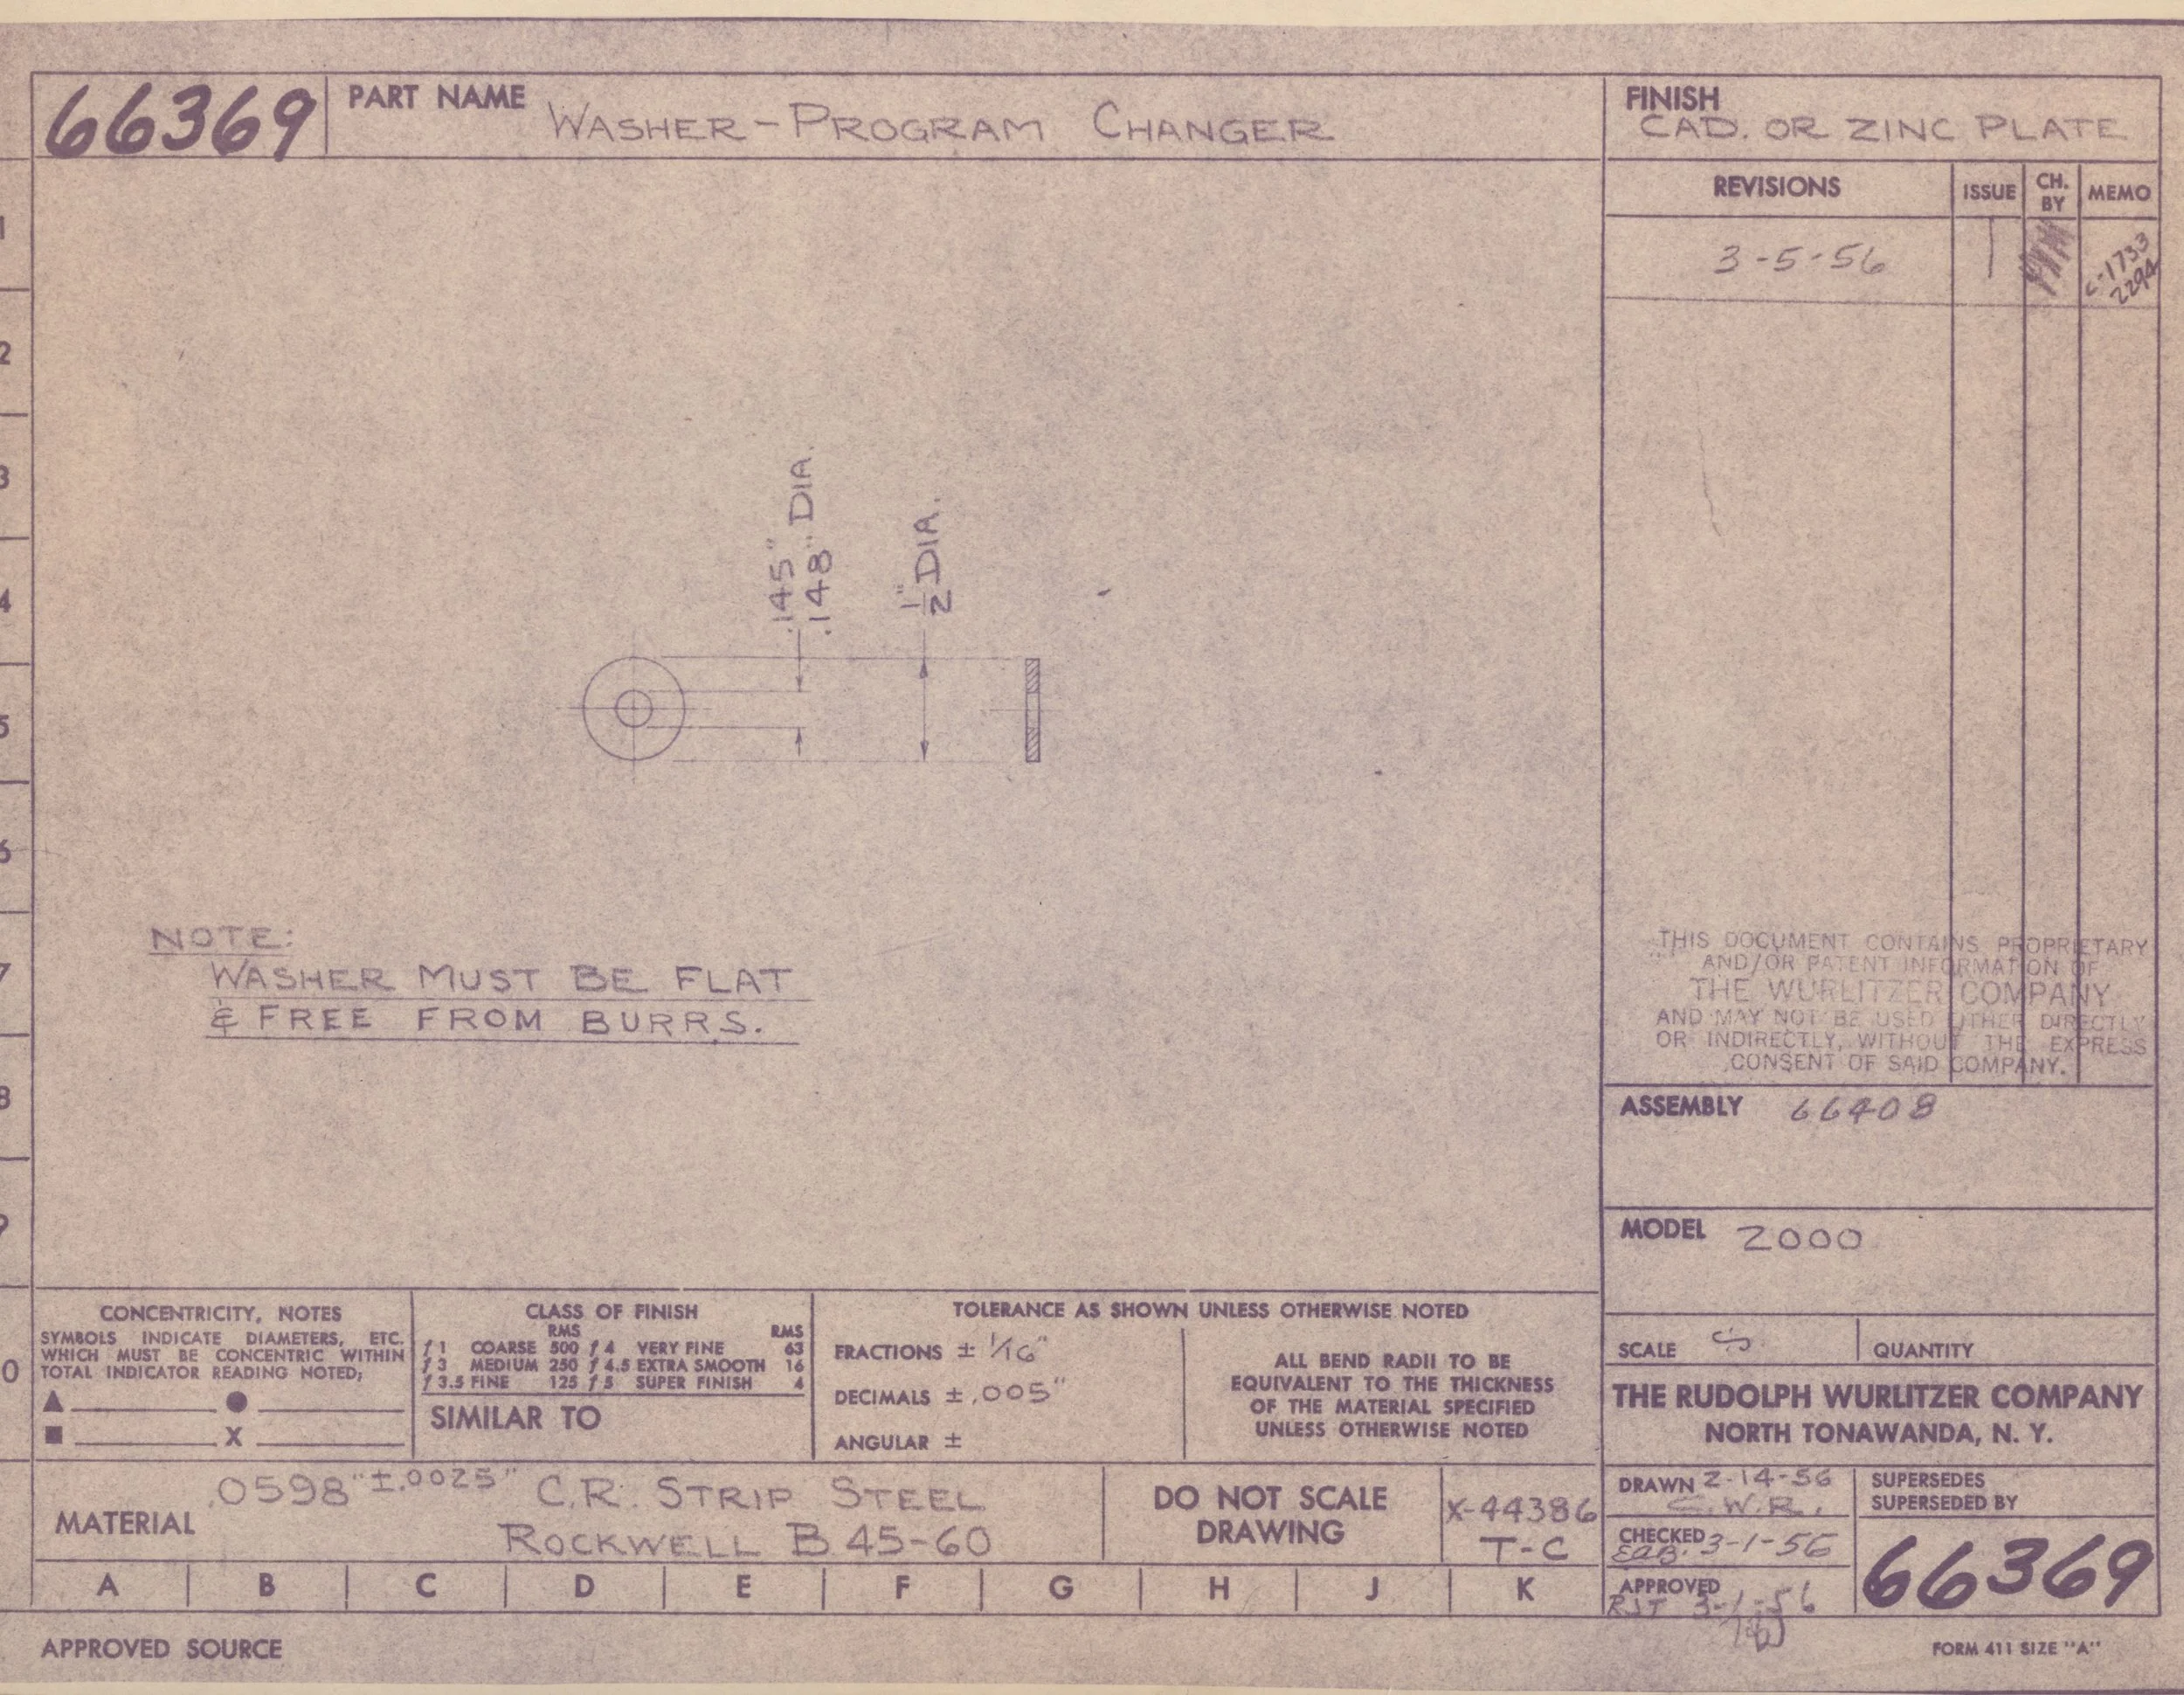 66369
PART NAME WASHER-PROGRAM CHANGER
FINISH
CAD. OR ZINC PLATE
REVISIONS ISSUE CH. BY MEMO
3-5-56 1 C-1733
2294
1
2
3
4
5
6
7
8
9
0
.145"
.148" DIA.
1/2" DIA.
NOTE:
WASHER MUST BE FLAT
& FREE FROM BURRS.
THIS DOCUMENT CONTAINS PROPRIETARY
AND/OR PATENT INFORMATION OF
THE WURLITZER COMPANY
AND MAY NOT BE USED EITHER DIRECTLY
OR INDIRECTLY, WITHOUT THE EXPRESS
CONSENT OF SAID COMPANY.
ASSEMBLY 66408
MODEL 2000
SCALE
QUANTITY
THE RUDOLPH WURLITZER COMPANY
NORTH TONAWANDA, N. Y.
CONCENTRICITY, NOTES
SYMBOLS INDICATE DIAMETERS, ETC.
WHICH MUST BE CONCENTRIC WITHIN
TOTAL INDICATOR READING NOTED;
▲ ●
■ X
CLASS OF FINISH
RMS RMS
f 1 COARSE 500 f 4 VERY FINE 63
f 3 MEDIUM 250 f 4.5 EXTRA SMOOTH 16
f 3.5 FINE 125 f 5 SUPER FINISH 4
SIMILAR TO
TOLERANCE AS SHOWN UNLESS OTHERWISE NOTED
FRACTIONS ± 1/16"
DECIMALS ± .005"
ANGULAR ±
ALL BEND RADII TO BE
EQUIVALENT TO THE THICKNESS
OF THE MATERIAL SPECIFIED
UNLESS OTHERWISE NOTED
MATERIAL .0598" ±.0025" C.R. STRIP STEEL
ROCKWELL B 45-60
DO NOT SCALE
DRAWING
X-44386
T-C
DRAWN 2-14-56
W.R.
CHECKED 3-1-56
EAB.
APPROVED
RJT 3-1-56
SUPERSEDES
SUPERSEDED BY
66369
A B C D E F G H J K
APPROVED SOURCE
FORM 411 SIZE "A"